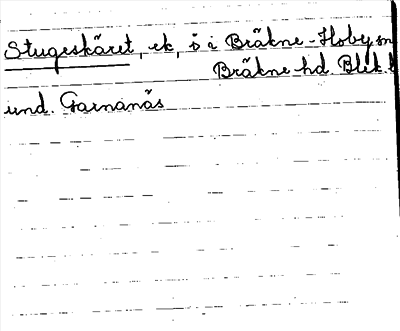 Stugeskäret, ek, ö i Bräkne-Hoby sn
Bräkne hd. Blek.
und. Garnanäs